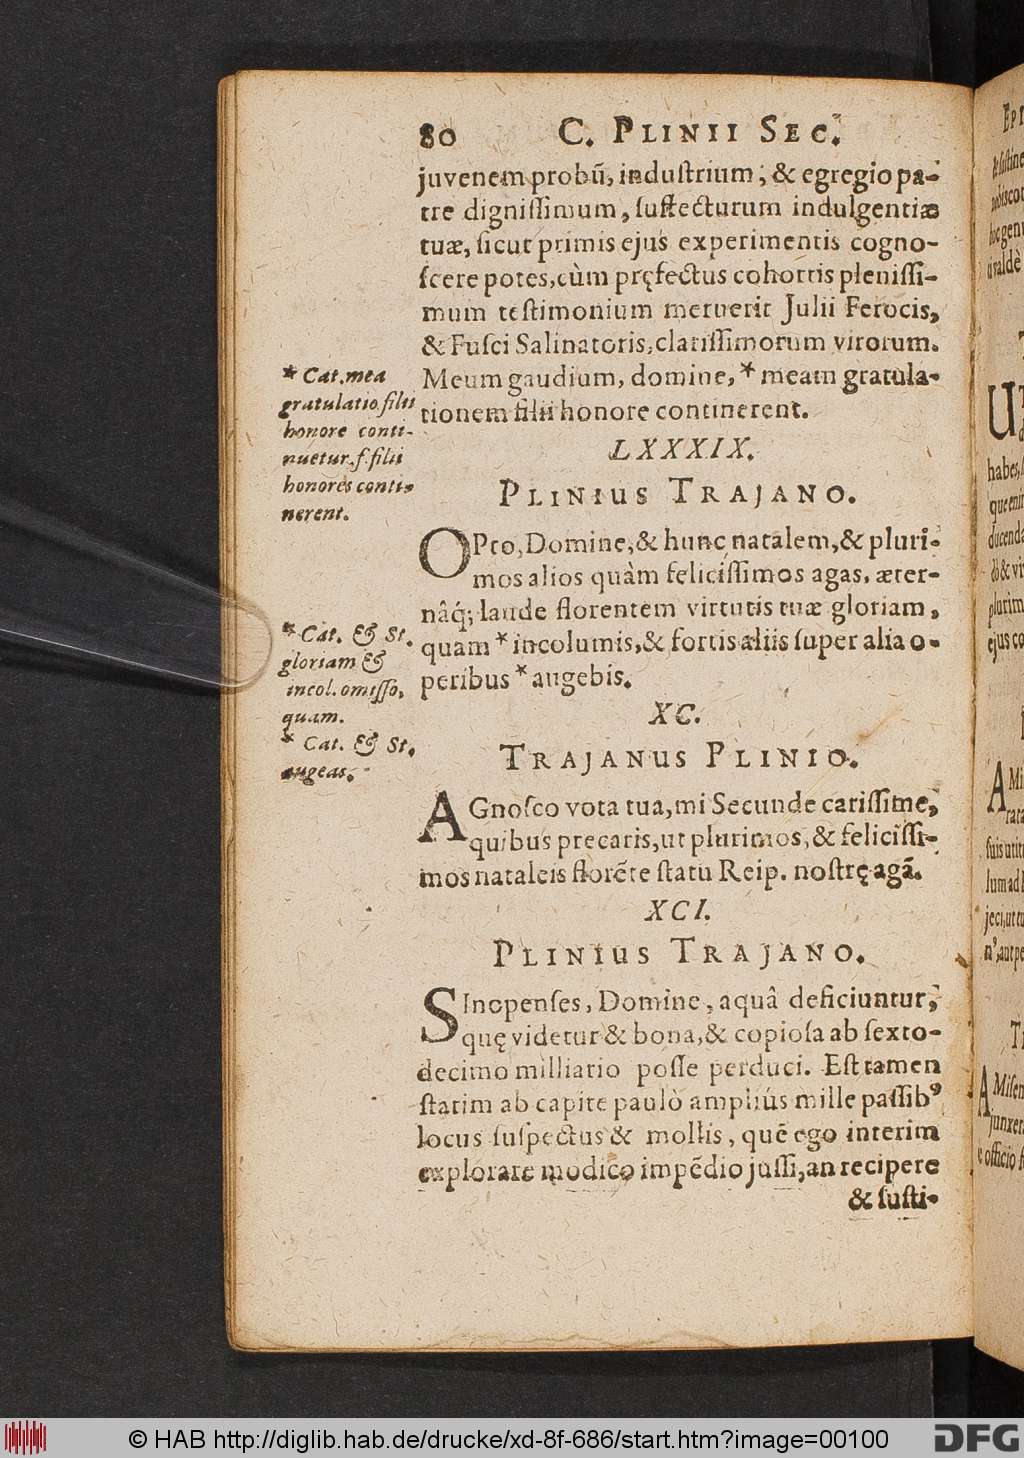 80 C. PLINII SEC.
juvenem probū, industrium, & egregio pa-
tre dignissimum, suffecturum indulgentiæ
tuæ, sicut primis ejus experimentis cogno-
scere potes, cùm pręfectus cohortis plenissi-
mum testimonium meruerit Julii Ferocis,
& Fusci Salinatoris, clarissimorum virorum.
Meum gaudium, domine, * meam gratula-
tionem filii honore continerent.
* Cat. mea
gratulatio filii
honore conti-
nuetur. f. filii
honores conti-
nerent.
LXXXIX.
PLINIUS TRAJANO.
OPto, Domine, & hunc natalem, & pluri-
mos alios quàm felicissimos agas, æter-
nâq́; laude florentem virtutis tuæ gloriam,
quam * incolumis, & fortis aliis super alia o-
peribus * augebis.
* Cat. & St.
gloriam &
incol. omisso,
quam.
* Cat. & St.
augeas.
XC.
TRAJANUS PLINIO.
AGnosco vota tua, mi Secunde carissime,
quibus precaris, ut plurimos, & felicissi-
mos nataleis florēte statu Reip. nostrę agā.
XCI.
PLINIUS TRAJANO.
SInopenses, Domine, aquâ deficiuntur,
quę videtur & bona, & copiosa ab sexto-
decimo milliario posse perduci. Est tamen
statim ab capite paulò ampliùs mille passib⁹
locus suspectus & mollis, quē ego interim
explorare modico impēdio jussi, an recipere
& susti-
© HAB http://diglib.hab.de/drucke/xd-8f-686/start.htm?image=00100
DFG